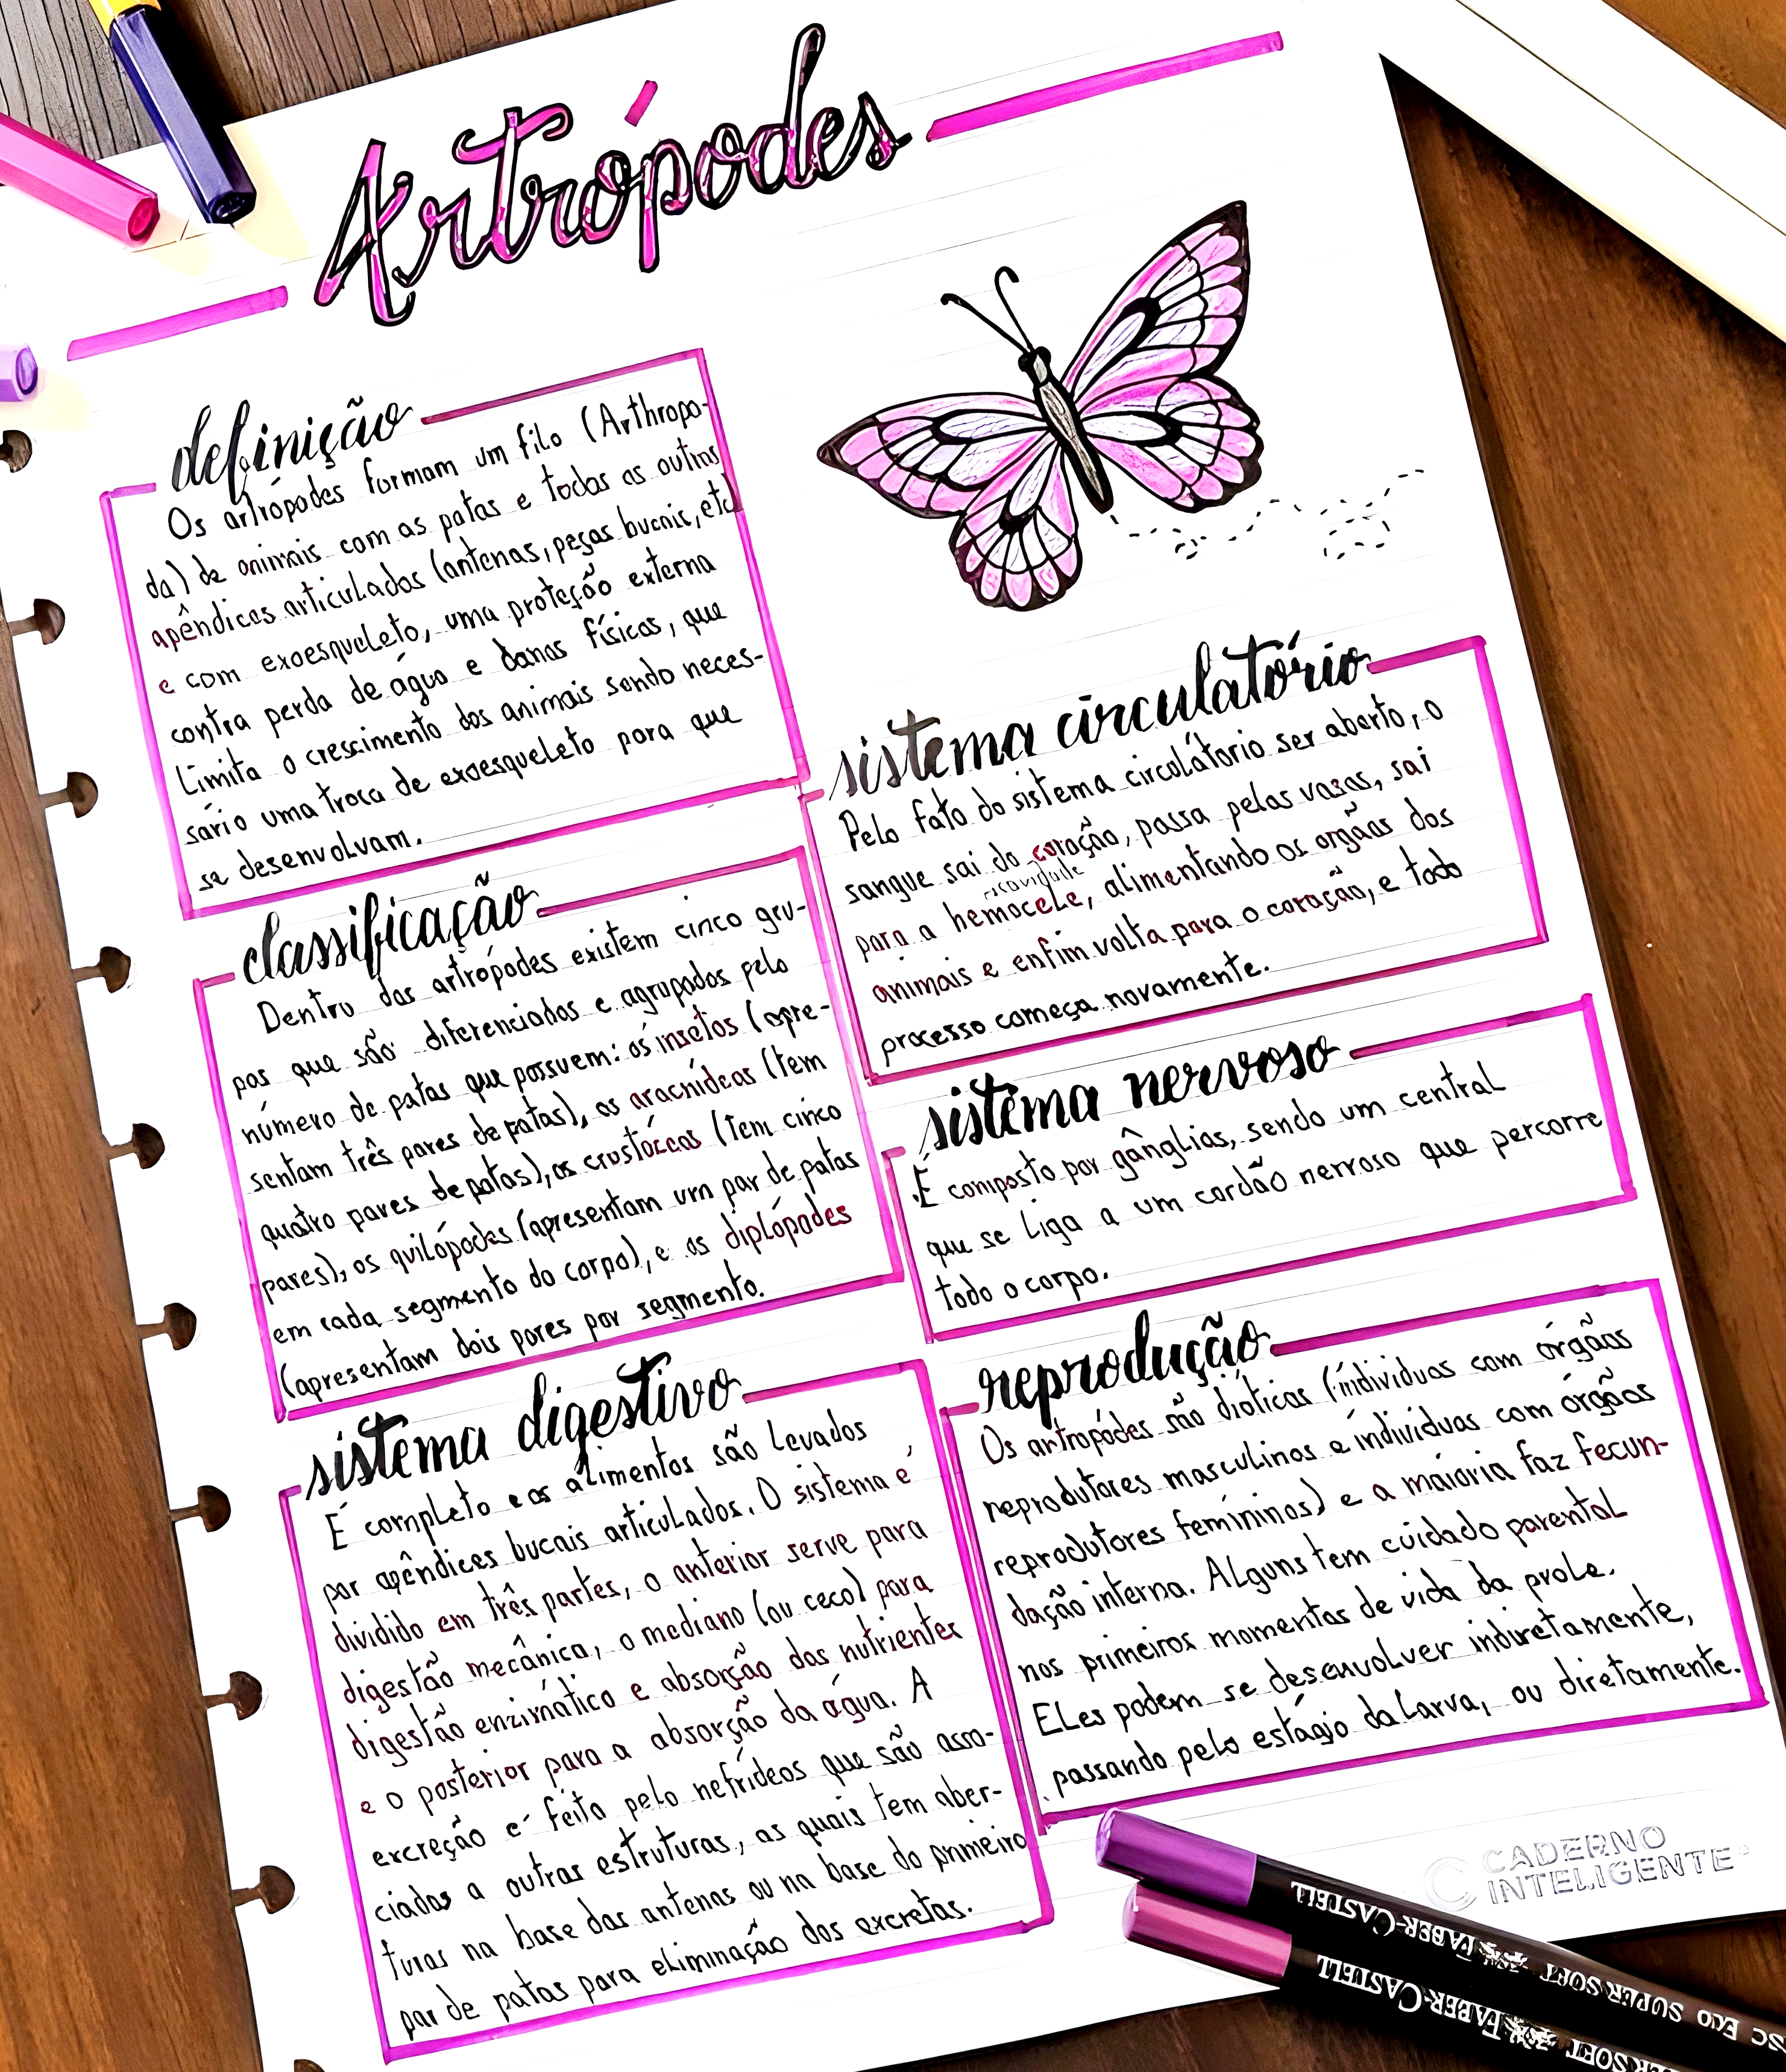 Artrópodes
definição
Os artrópodes formam um filo (Arthropo-
da) de animais com as patas e todos os outros
apêndices articulados (antenas, peças bucais, etc)
e com exoesqueleto, uma proteção externa
contra perda de água e danos físicos, que
limita o crescimento dos animais sendo neces-
sário uma troca de exoesqueleto para que
se desenvolvam.
classificação
Dentro dos artrópodes existem cinco gru-
pos que são diferenciados e agrupados pelo
número de patas que possuem: os insetos (apre-
sentam três pares de patas), os aracnídeos (tem
quatro pares de patas), os crustáceos (tem cinco
pares), os quilópodes (apresentam um par de patas
em cada segmento do corpo), e os diplópodes
(apresentam dois pares por segmento.
sistema digestivo
É completo e os alimentos são levados
por apêndices bucais articulados. O sistema é
dividido em três partes, o anterior serve para
digestão mecânica, o mediano (ou ceco) para
digestão enzimático e absorção dos nutrientes
e o posterior para a absorção da água. A
excreção é feita pelo nefrídeos que são asso-
ciados a outras estruturas, as quais tem aber-
turas na base das antenas ou na base do primeiro
par de patas para eliminação dos excretas.
sistema circulatório
Pelo fato do sistema circulátorio ser aberto, o
sangue sai do coração, passa pelos vasos, sai
cavidade
para a hemocele, alimentando os orgãos dos
animais e enfim volta para o coração, e todo
processo começa novamente.
sistema nervoso
É composto por gânglias, sendo um central
que se liga a um cordão nervoso que percorre
todo o corpo.
reprodução
Os artropódes são dióticos (indivíduos com órgãos
reprodutores masculinos e indivíduos com órgãos
reprodutores femininos) e a maioria faz fecun-
dação interna. Alguns tem cuidado parental
nos primeiros momentos de vida da prole.
Eles podem se desenvolver indiretamente,
passando pelo estágio da larva, ou diretamente.
CADERNO
INTELIGENTE
FABER-CASTELL SUPER SOFT ECO
FABER-CASTELL SUPER SOFT